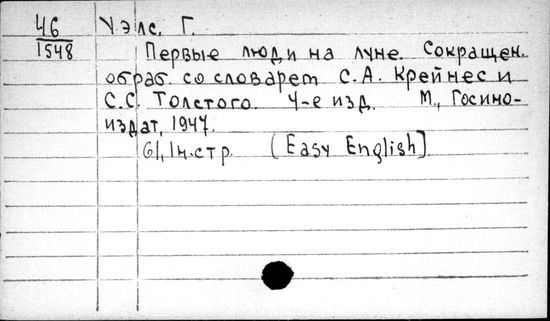 46 Уэлс, Г.
1548
Первые люди на луне. Сокращен.
обраб. со словарем С.А. Крейнес и
С.С. Толстого. 4-е изд. М., Госино-
издат, 1947.
61, 1н.стр. (Easy English]